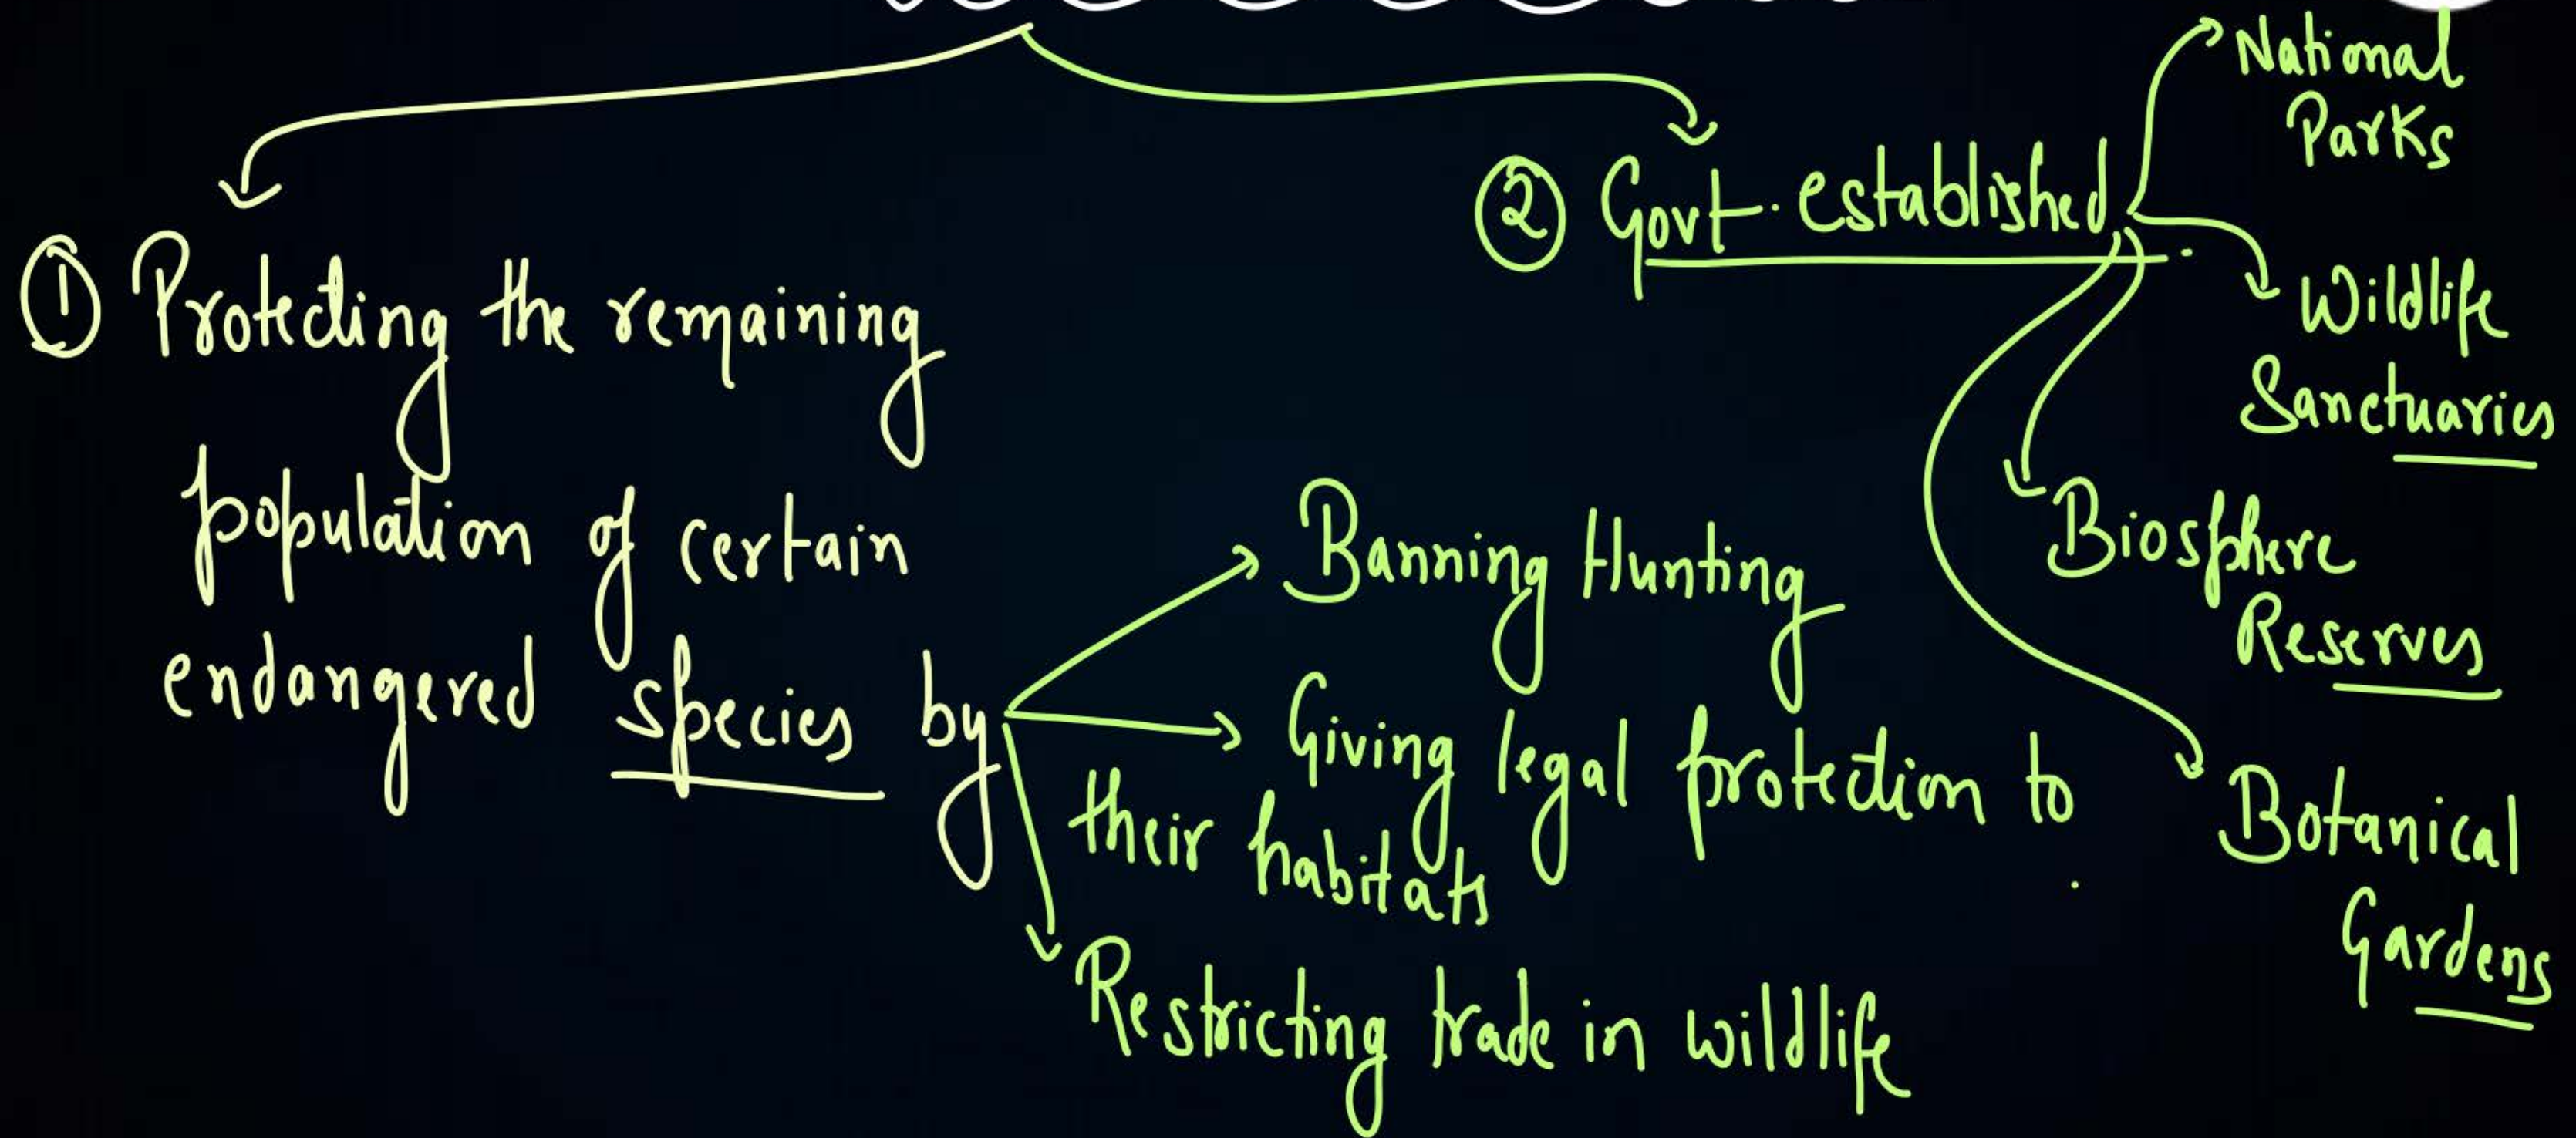 ① Protecting the remaining
population of certain
endangered species by
Banning Hunting
Giving legal protection to
their habitats
Restricting trade in wildlife
② Govt. established
National
Parks
Wildlife
Sanctuaries
Biosphere
Reserves
Botanical
Gardens